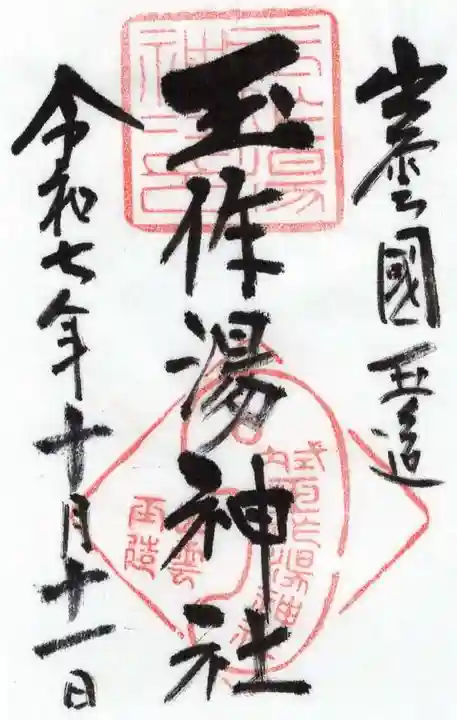 出雲國 玉造
玉作湯神社
令和七年十月十一日
玉作湯
神社印
式内
玉作湯神社
出雲
玉造